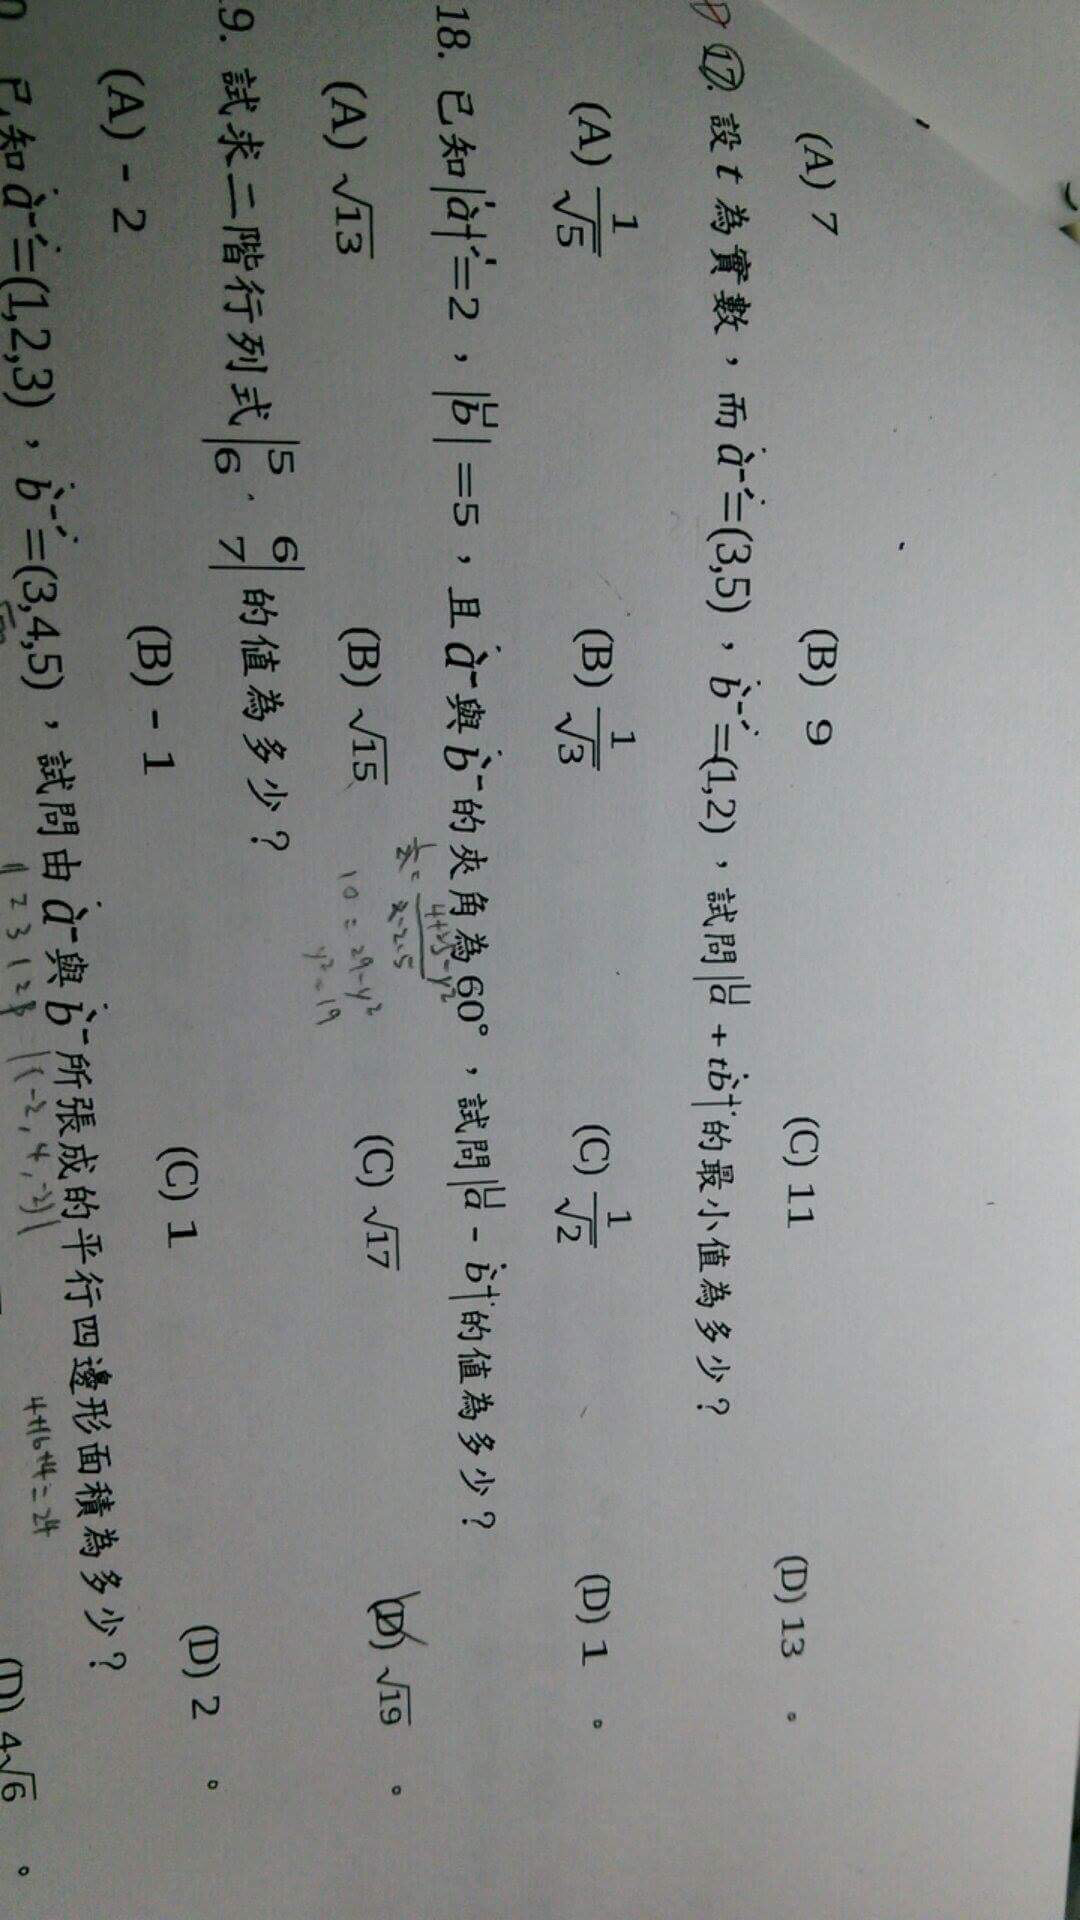 (A) 7 (B) 9 (C) 11 (D) 13 。
17. 設 t 為實數，而 a=(3,5)，b=(1,2)，試問|a + tb|的最小值為多少？
(A) 1/√5 (B) 1/√3 (C) 1/√2 (D) 1 。
18. 已知|a|=2，|b|=5，且 a 與 b 的夾角為60°，試問|a - b|的值為多少？
1/2 = 4+25-y²/2·2·5
10 = 29-y²
y²=19
(A) √13 (B) √15 (C) √17 (D) √19 。
9. 試求二階行列式|5 6
6 7|的值為多少？
(A) - 2 (B) - 1 (C) 1 (D) 2 。
已知 a=(1,2,3)，b=(3,4,5)，試問由 a 與 b 所張成的平行四邊形面積為多少？
|(-2,4,-2)|
4+16+4=24
(D) 4√6 。